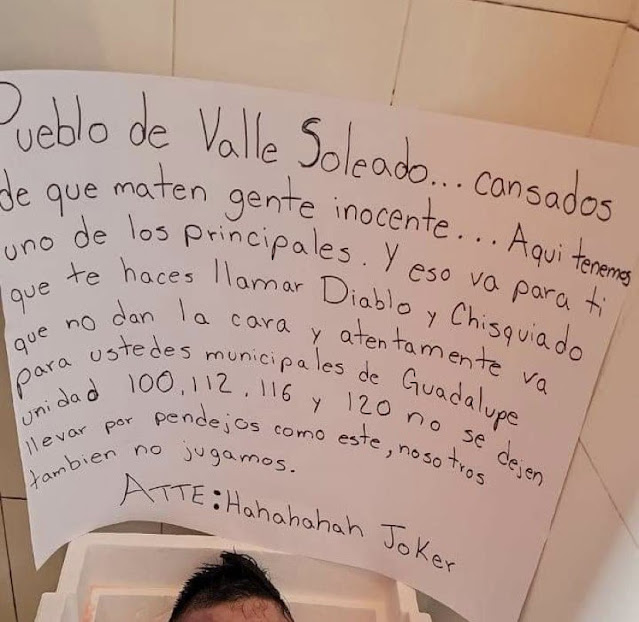 Pueblo de Valle Soleado... cansados
de que maten gente inocente... Aqui tenemos
uno de los principales. Y eso va para ti
que te haces llamar Diablo y Chisquiado
que no dan la cara y atentamente va
para ustedes municipales de Guadalupe
unidad 100, 112, 116 y 120 no se dejen
llevar por pendejos como este, nosotros
tambien no jugamos.
ATTE: Hahahahah Joker